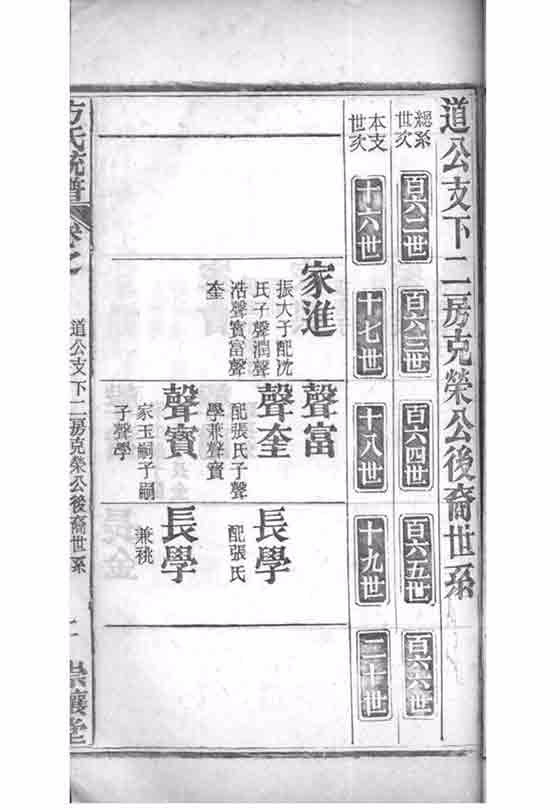 道公支下二房克榮公後裔世系
總系世次
百六二世
百六三世
百六四世
百六五世
百六六世
本支世次
十六世
十七世
十八世
十九世
二十世
家進
振大子配沈
氏子聲潤聲
浩聲寳富聲
奎
聲富
聲奎
配張氏子聲
學兼聲寳
聲寳
家玉嗣子嗣
子聲學
長學
配張氏
長學
兼祧
方氏統譜
卷之
道公支下二房克榮公後裔世系
崇讓堂